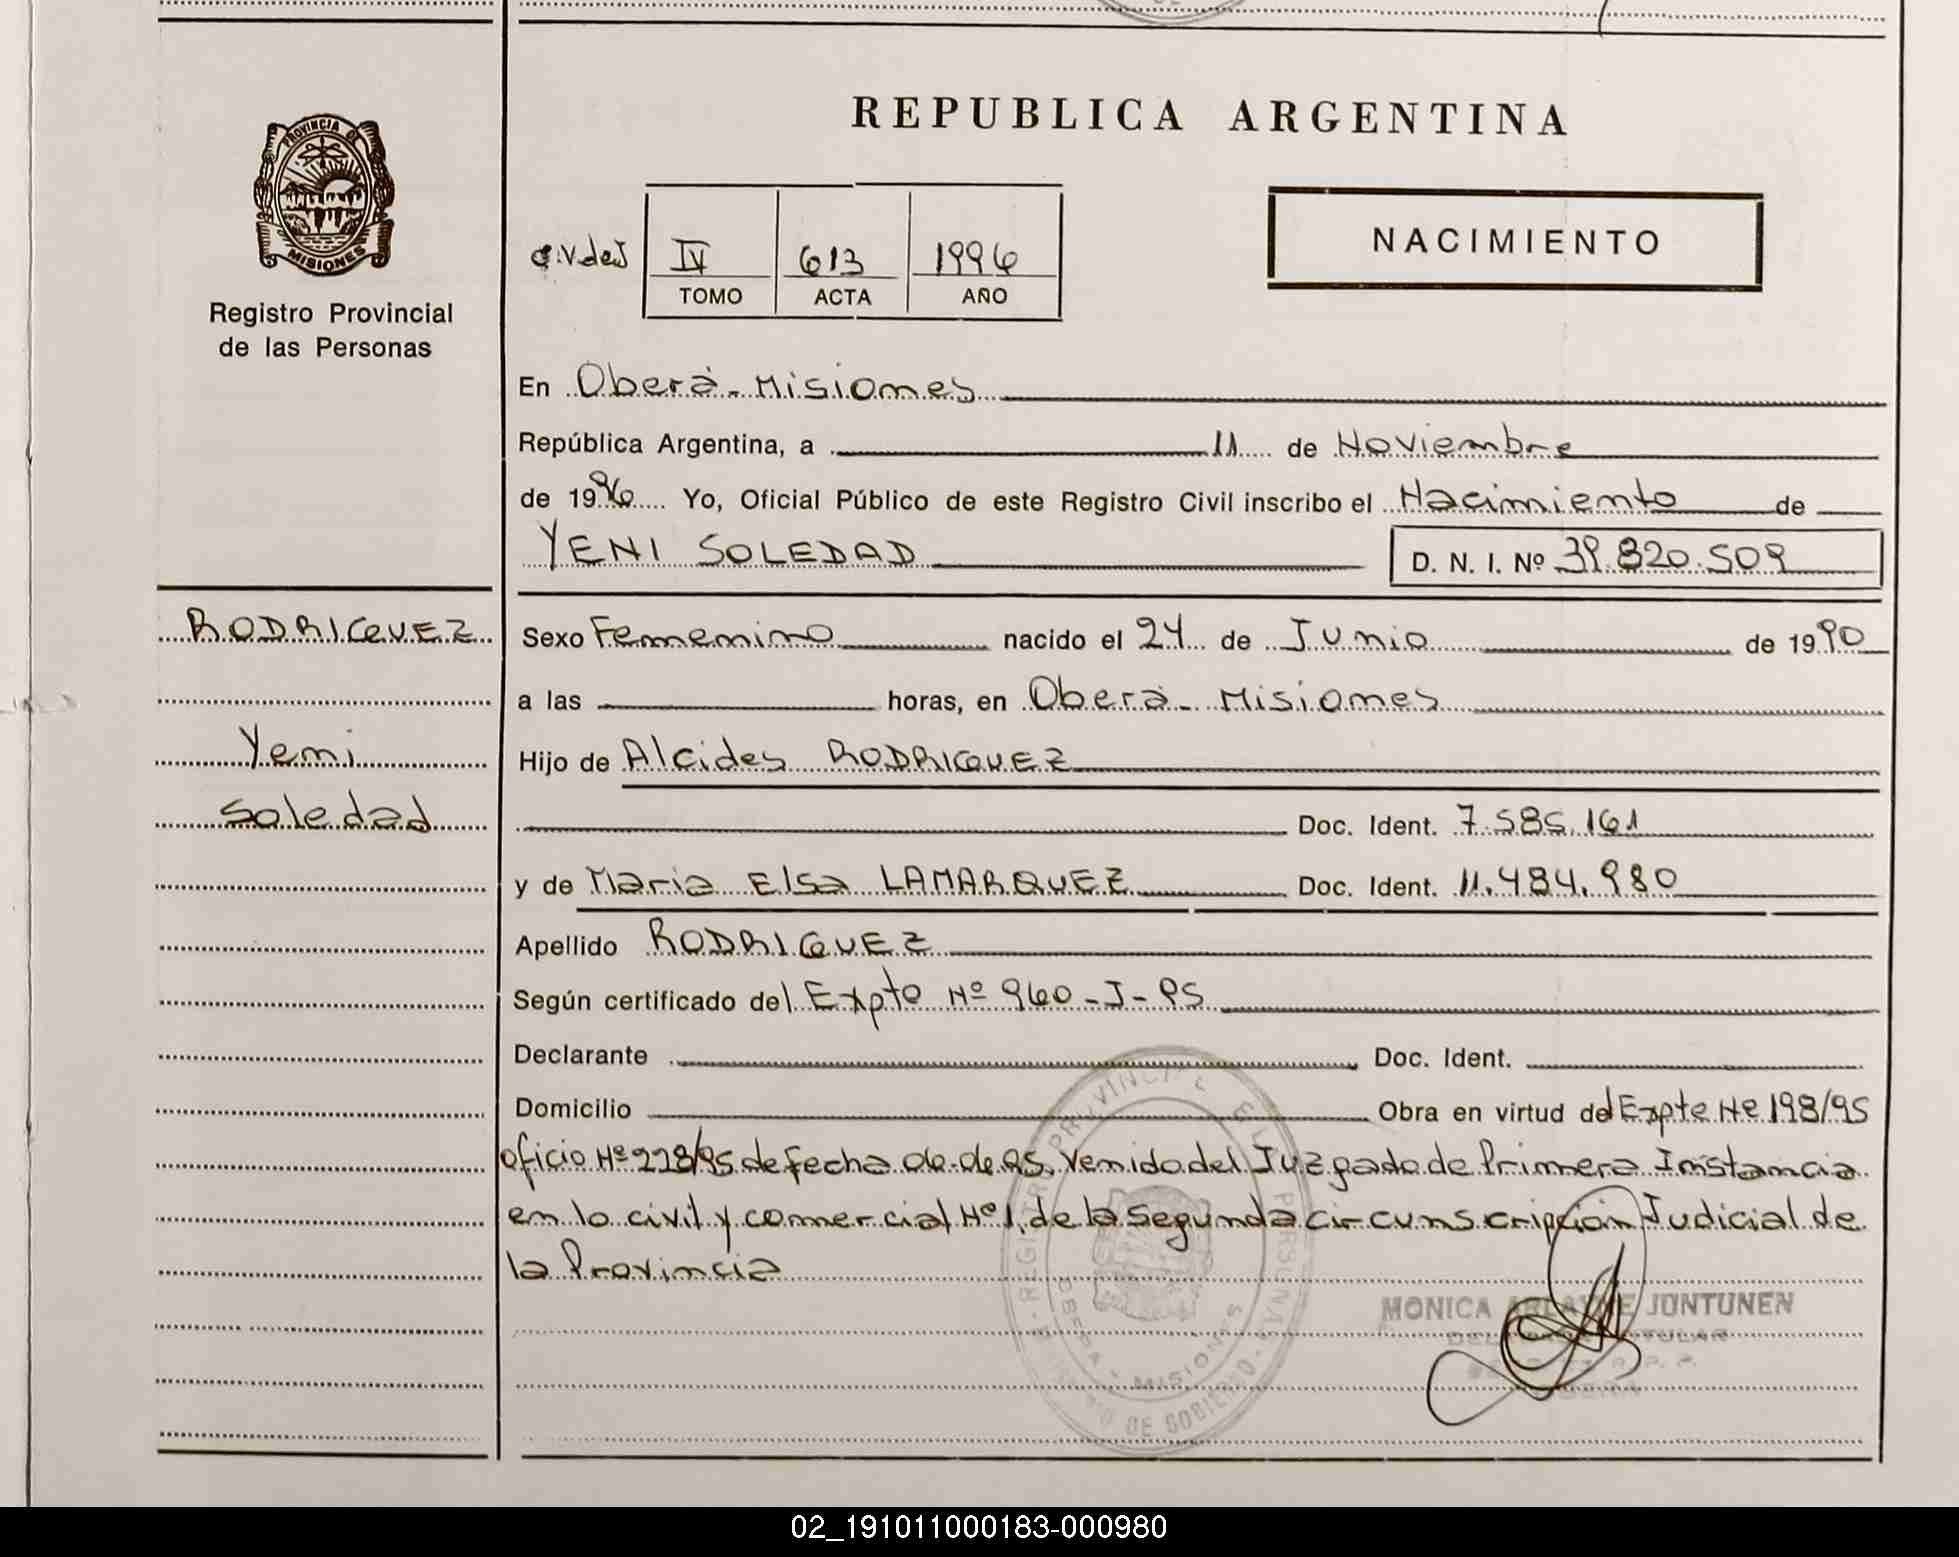 REPUBLICA ARGENTINA
PROVINCIA DE
MISIONES
Registro Provincial
de las Personas
NACIMIENTO
IV 613 1996
TOMO ACTA AÑO
En Oberá - Misiones
República Argentina, a 11 de Noviembre
de 1996 Yo, Oficial Público de este Registro Civil inscribo el Nacimiento de
YENI SOLEDAD D. N. I. Nº 39.820.509
RODRIGUEZ
Yeni
Soledad
Sexo Femenino nacido el 24 de Junio de 1990
a las horas, en Oberá - Misiones
Hijo de Alcides RODRIGUEZ
Doc. Ident. 7.585.161
y de Maria Elsa LAMARQUEZ Doc. Ident. 11.484.980
Apellido RODRIGUEZ
Según certificado del Expte Nº 960-J-95
Declarante Doc. Ident.
Domicilio Obra en virtud del Expte Nº 198/95
oficio Nº 228/95 de fecha de 95, Venido del Juzgado de Primera Instancia
en lo civil y commercial Nº 1, de la Segunda circunscripción Judicial de
la Provincia
REGISTRO PROVINCIAL DE LAS PERSONAS
OBERA - MISIONES
DE GOBIERNO
MONICA ARLAYNE JUNTUNEN
TITULAR
02_191011000183-000980